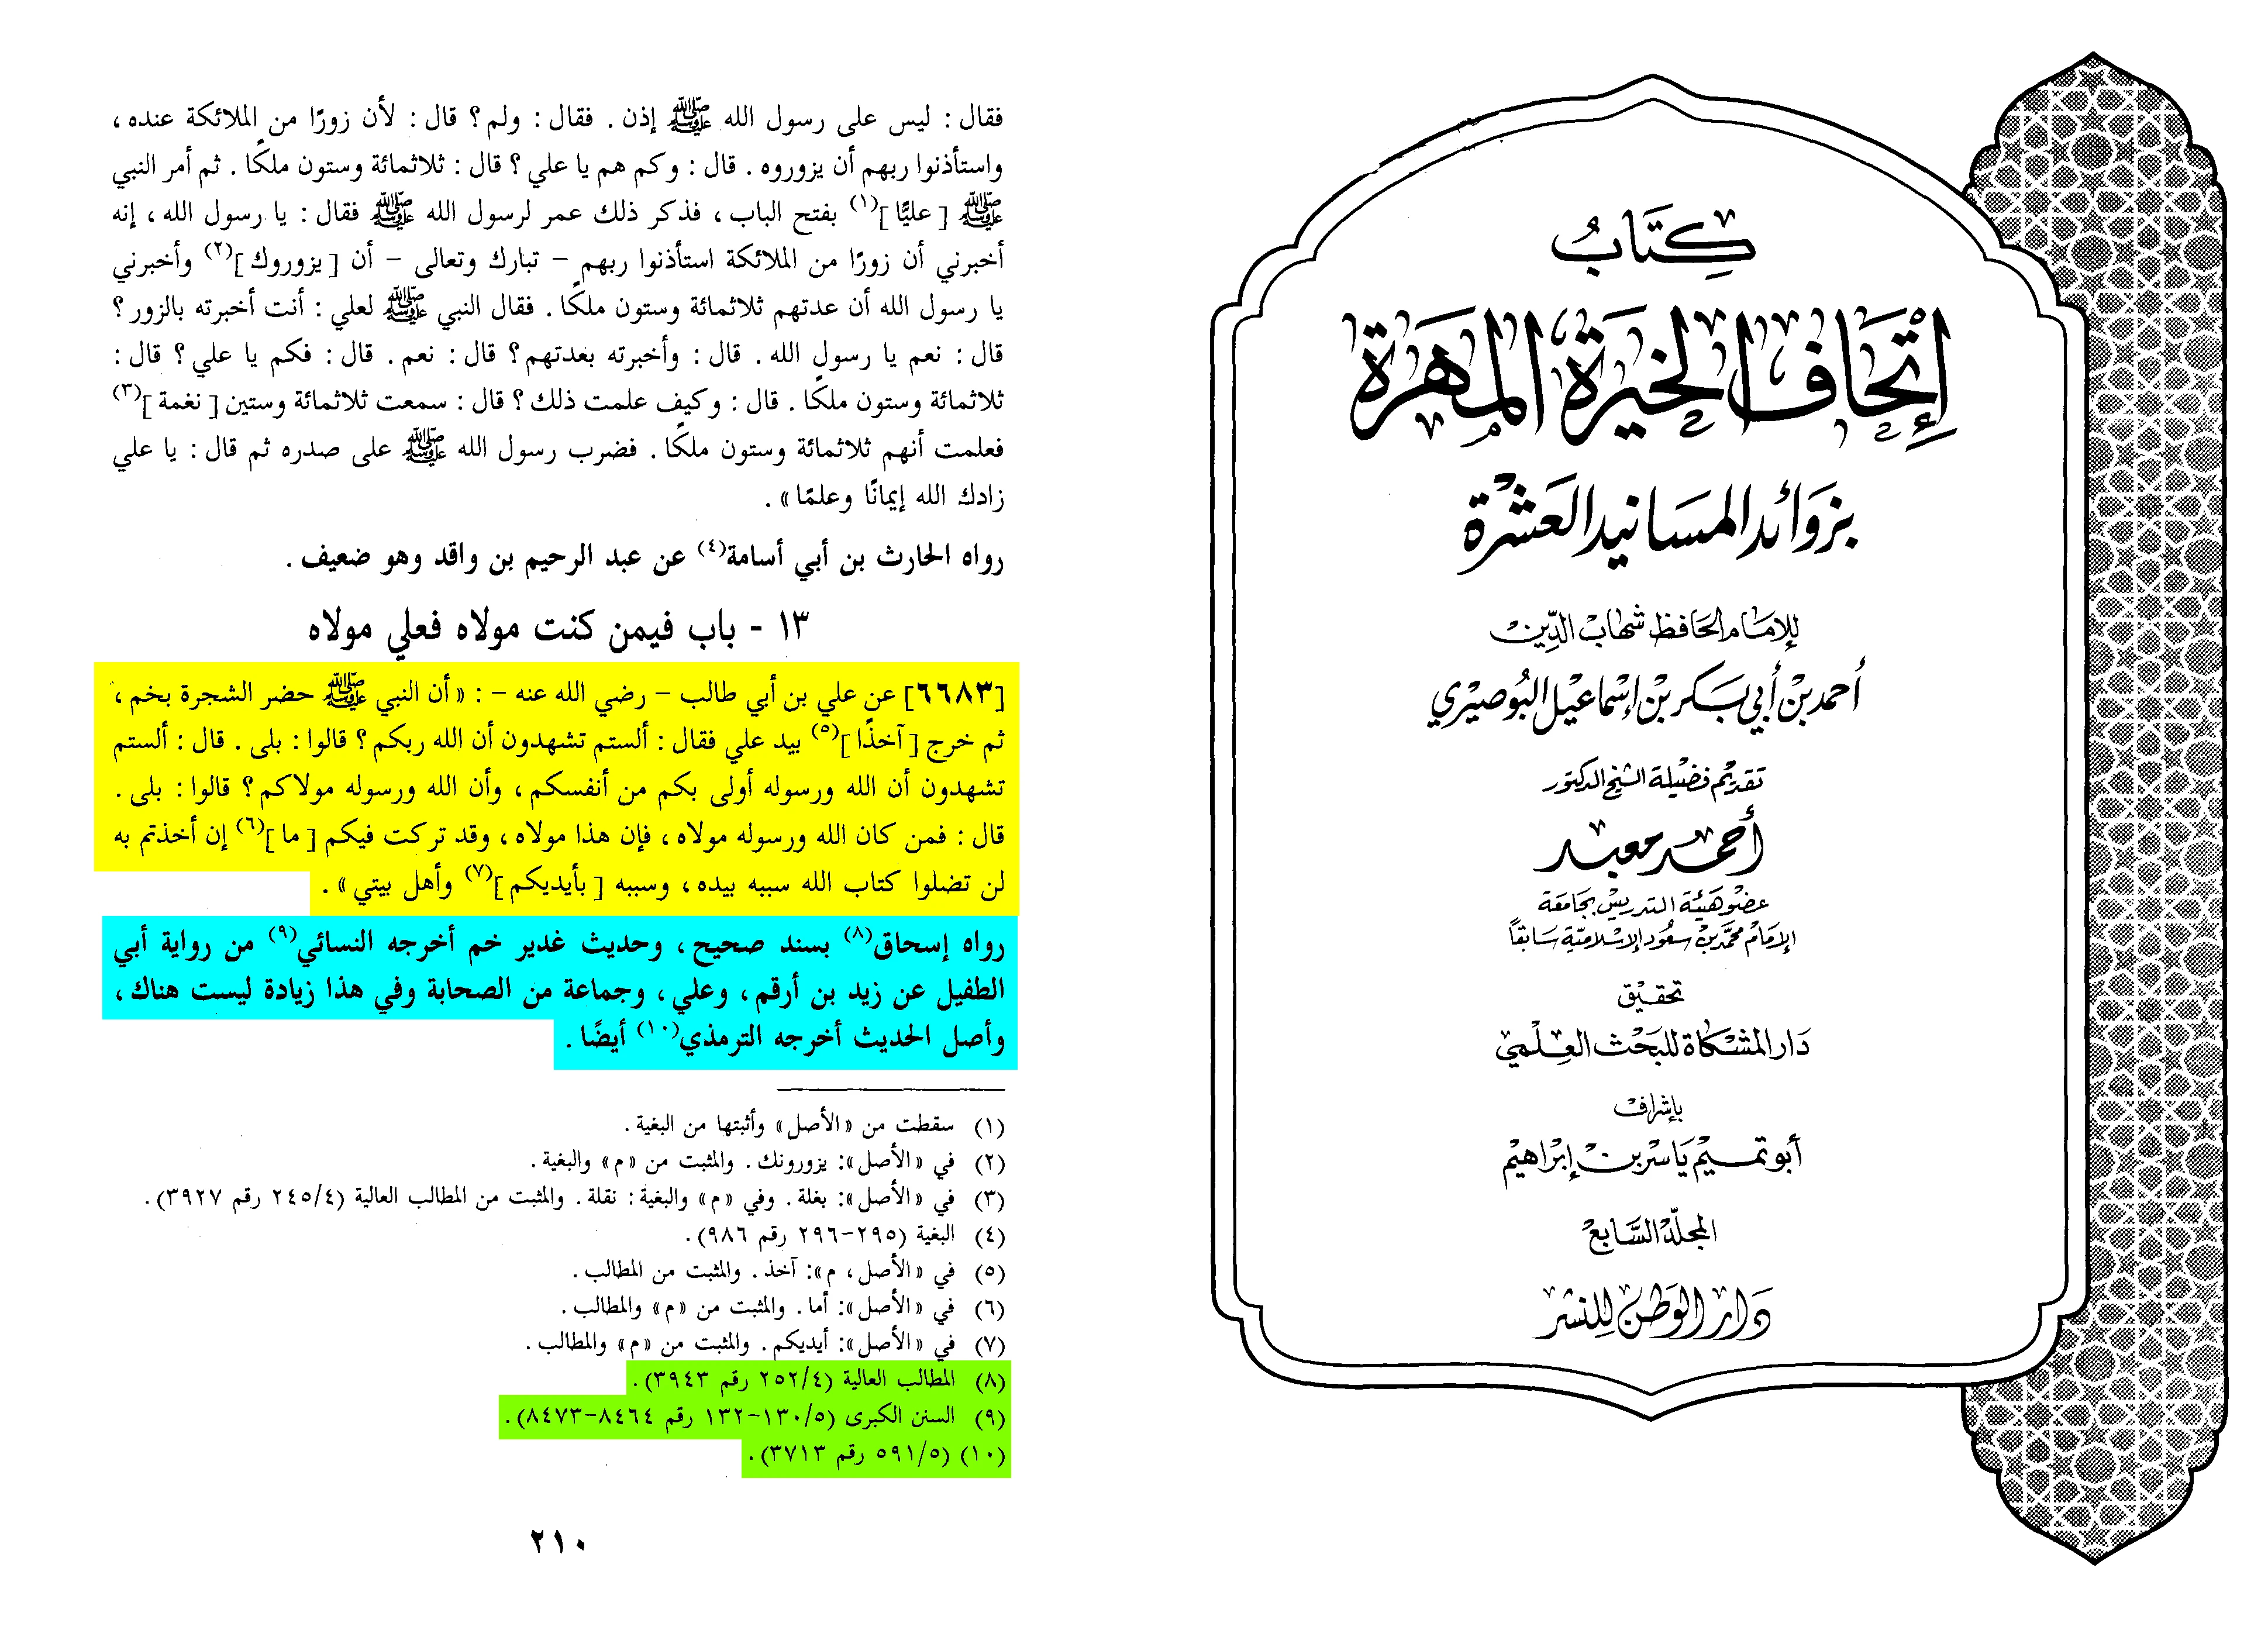 كِتَابُ
إِتْحَافِ الخِيَرَةِ المَهَرَةِ
بزَوَائد المسَانيد العَشَرَة
للإمام الحافظ شهاب الدِّين
أحمد بن أبي بَكر بن إسْماعيل البُوصيْري
تقديم فضيلة الشيخ الدكتور
أحمد معبد
عضو هَيئة التدريس بجَامعَة
الإمَام محمَّد بن سعُود الإسْلاميّة سَابقاً
تحقيق
دَار المشكاة للبَحْث العِلمي
بإشراف
أبو تميم يَاسر بن إبْرَاهيم
المجلّد السَّابع
دَار الوَطن للنشر
فقال : ليس على رسول الله ﷺ إذن . فقال : ولم ؟ قال : لأن زورًا من الملائكة عنده ،
واستأذنوا ربهم أن يزوروه . قال : وكم هم يا علي ؟ قال : ثلاثمائة وستون ملكًا . ثم أمر النبي
ﷺ [ عليًّا ](١) بفتح الباب ، فذكر ذلك عمر لرسول الله ﷺ فقال : يا رسول الله ، إنه
أخبرني أن زورًا من الملائكة استأذنوا ربهم – تبارك وتعالى – أن [ يزوروك ](٢) وأخبرني
يا رسول الله أن عدتهم ثلاثمائة وستون ملكًا . فقال النبي ﷺ لعلي : أنت أخبرته بالزور ؟
قال : نعم يا رسول الله . قال : وأخبرته بعدتهم ؟ قال : نعم . قال : فكم يا علي ؟ قال :
ثلاثمائة وستون ملكًا . قال : وكيف علمت ذلك ؟ قال : سمعت ثلاثمائة وستين [ نغمة ](٣)
فعلمت أنهم ثلاثمائة وستون ملكًا . فضرب رسول الله ﷺ على صدره ثم قال : يا علي
زادك الله إيمانًا وعلمًا » .
رواه الحارث بن أبي أسامة(٤) عن عبد الرحيم بن واقد وهو ضعيف .
١٣ - باب فيمن كنت مولاه فعلي مولاه
[٦٦٨٣] عن علي بن أبي طالب – رضي الله عنه – : « أن النبي ﷺ حضر الشجرة بخم ،
ثم خرج [ آخذًا ](٥) بيد علي فقال : ألستم تشهدون أن الله ربكم ؟ قالوا : بلى . قال : ألستم
تشهدون أن الله ورسوله أولى بكم من أنفسكم ، وأن الله ورسوله مولاكم ؟ قالوا : بلى .
قال : فمن كان الله ورسوله مولاه ، فإن هذا مولاه ، وقد تركت فيكم [ ما ](٦) إن أخذتم به
لن تضلوا كتاب الله سببه بيده ، وسببه [ بأيديكم ](٧) وأهل بيتي » .
رواه إسحاق(٨) بسند صحيح ، وحديث غدير خم أخرجه النسائي(٩) من رواية أبي
الطفيل عن زيد بن أرقم ، وعلي ، وجماعة من الصحابة وفي هذا زيادة ليست هناك ،
وأصل الحديث أخرجه الترمذي(١٠) أيضًا .
(١) سقطت من «الأصل» وأثبتها من البغية .
(٢) في «الأصل»: يزورونك . والمثبت من «م» والبغية .
(٣) في «الأصل»: بغلة . وفي «م» والبغية : نقلة . والمثبت من المطالب العالية (٢٤٥/٤ رقم ٣٩٢٧) .
(٤) البغية (٢٩٥–٢٩٦ رقم ٩٨٦) .
(٥) في «الأصل ، م»: آخذ . والمثبت من المطالب .
(٦) في «الأصل»: أما . والمثبت من «م» والمطالب .
(٧) في «الأصل»: أيديكم . والمثبت من «م» والمطالب .
(٨) المطالب العالية (٢٥٢/٤ رقم ٣٩٤٣) .
(٩) السنن الكبرى (١٣٠/٥–١٣٢ رقم ٨٤٦٤–٨٤٧٣) .
(١٠) (٥٩١/٥ رقم ٣٧١٣) .
٢١٠